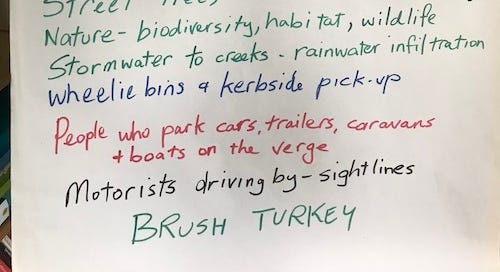 Street Trees
Nature - biodiversity, habitat, wildlife
Stormwater to creeks - rainwater infiltration
Wheelie bins & kerbside pick-up
People who park cars, trailers, caravans
+ boats on the verge
Motorists driving by - sightlines
BRUSH TURKEY